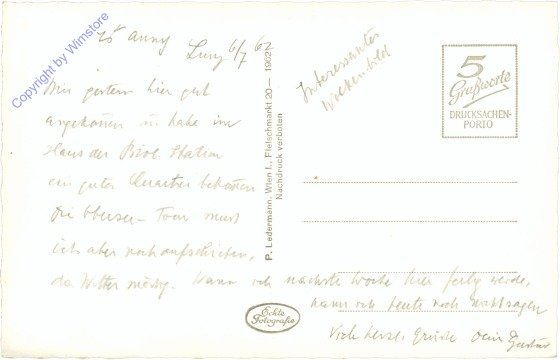 Copyright by Wimstore
Lunz 6/7 62
Bin gestern hier gut
angekommen u. habe im
Haus der Biol. Station
ein gutes Quartier bekommen
Die Obersee-Tour muss
ich aber noch aufschieben,
da Wetter mässig. Kann ich nächste Woche hier fertig werde,
kann ich heute noch nicht sagen
Viele herzl. Grüsse Dein Gustav
P. Ledermann, Wien I., Fleischmarkt 20 — 19021
Nachdruck verboten
Interessantes
Wolkenbild
5
Grußworte
DRUCKSACHEN-
PORTO
Echte
Fotografie